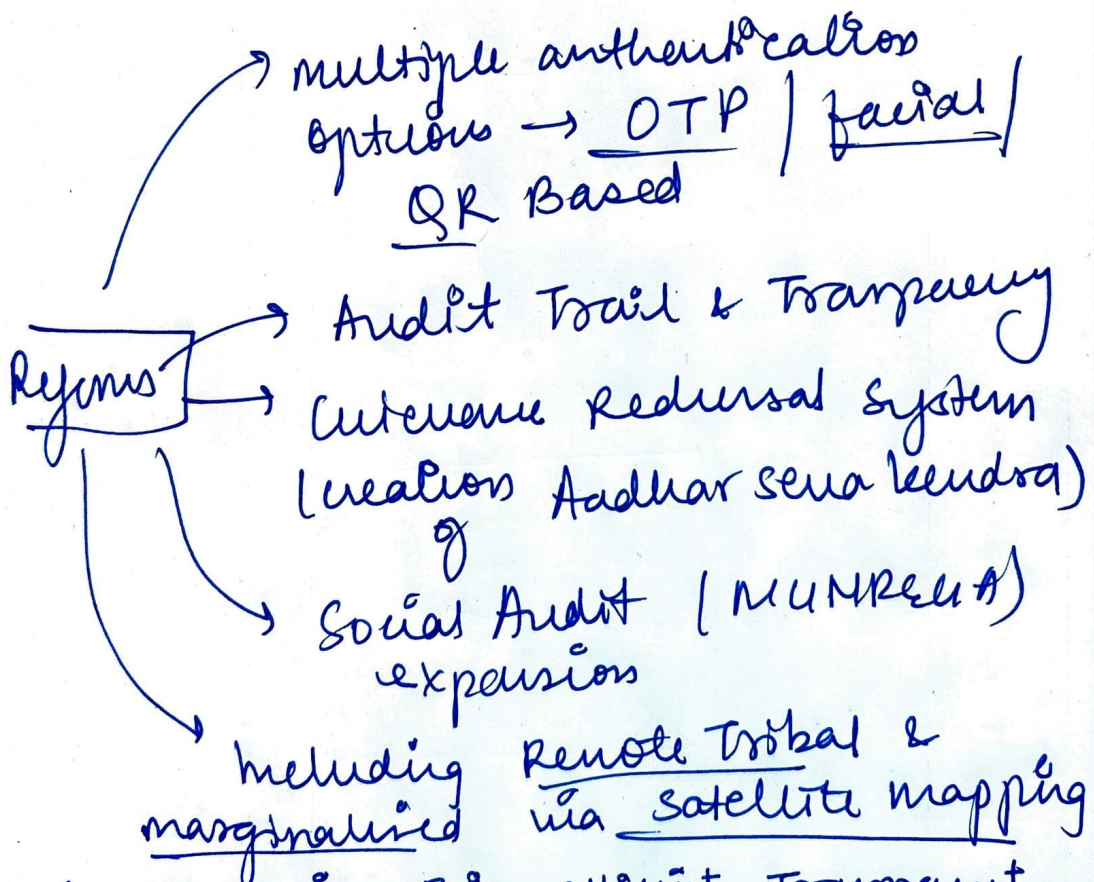 multiple authentication
options → OTP | facial |
QR Based
Audit Trail & Transparency
Reforms
Grievance Redressal System
(creation of Aadhar seva kendra)
Social Audit (MGNREGA)
expansion
Including Remote Tribal &
marginalised via satellite mapping